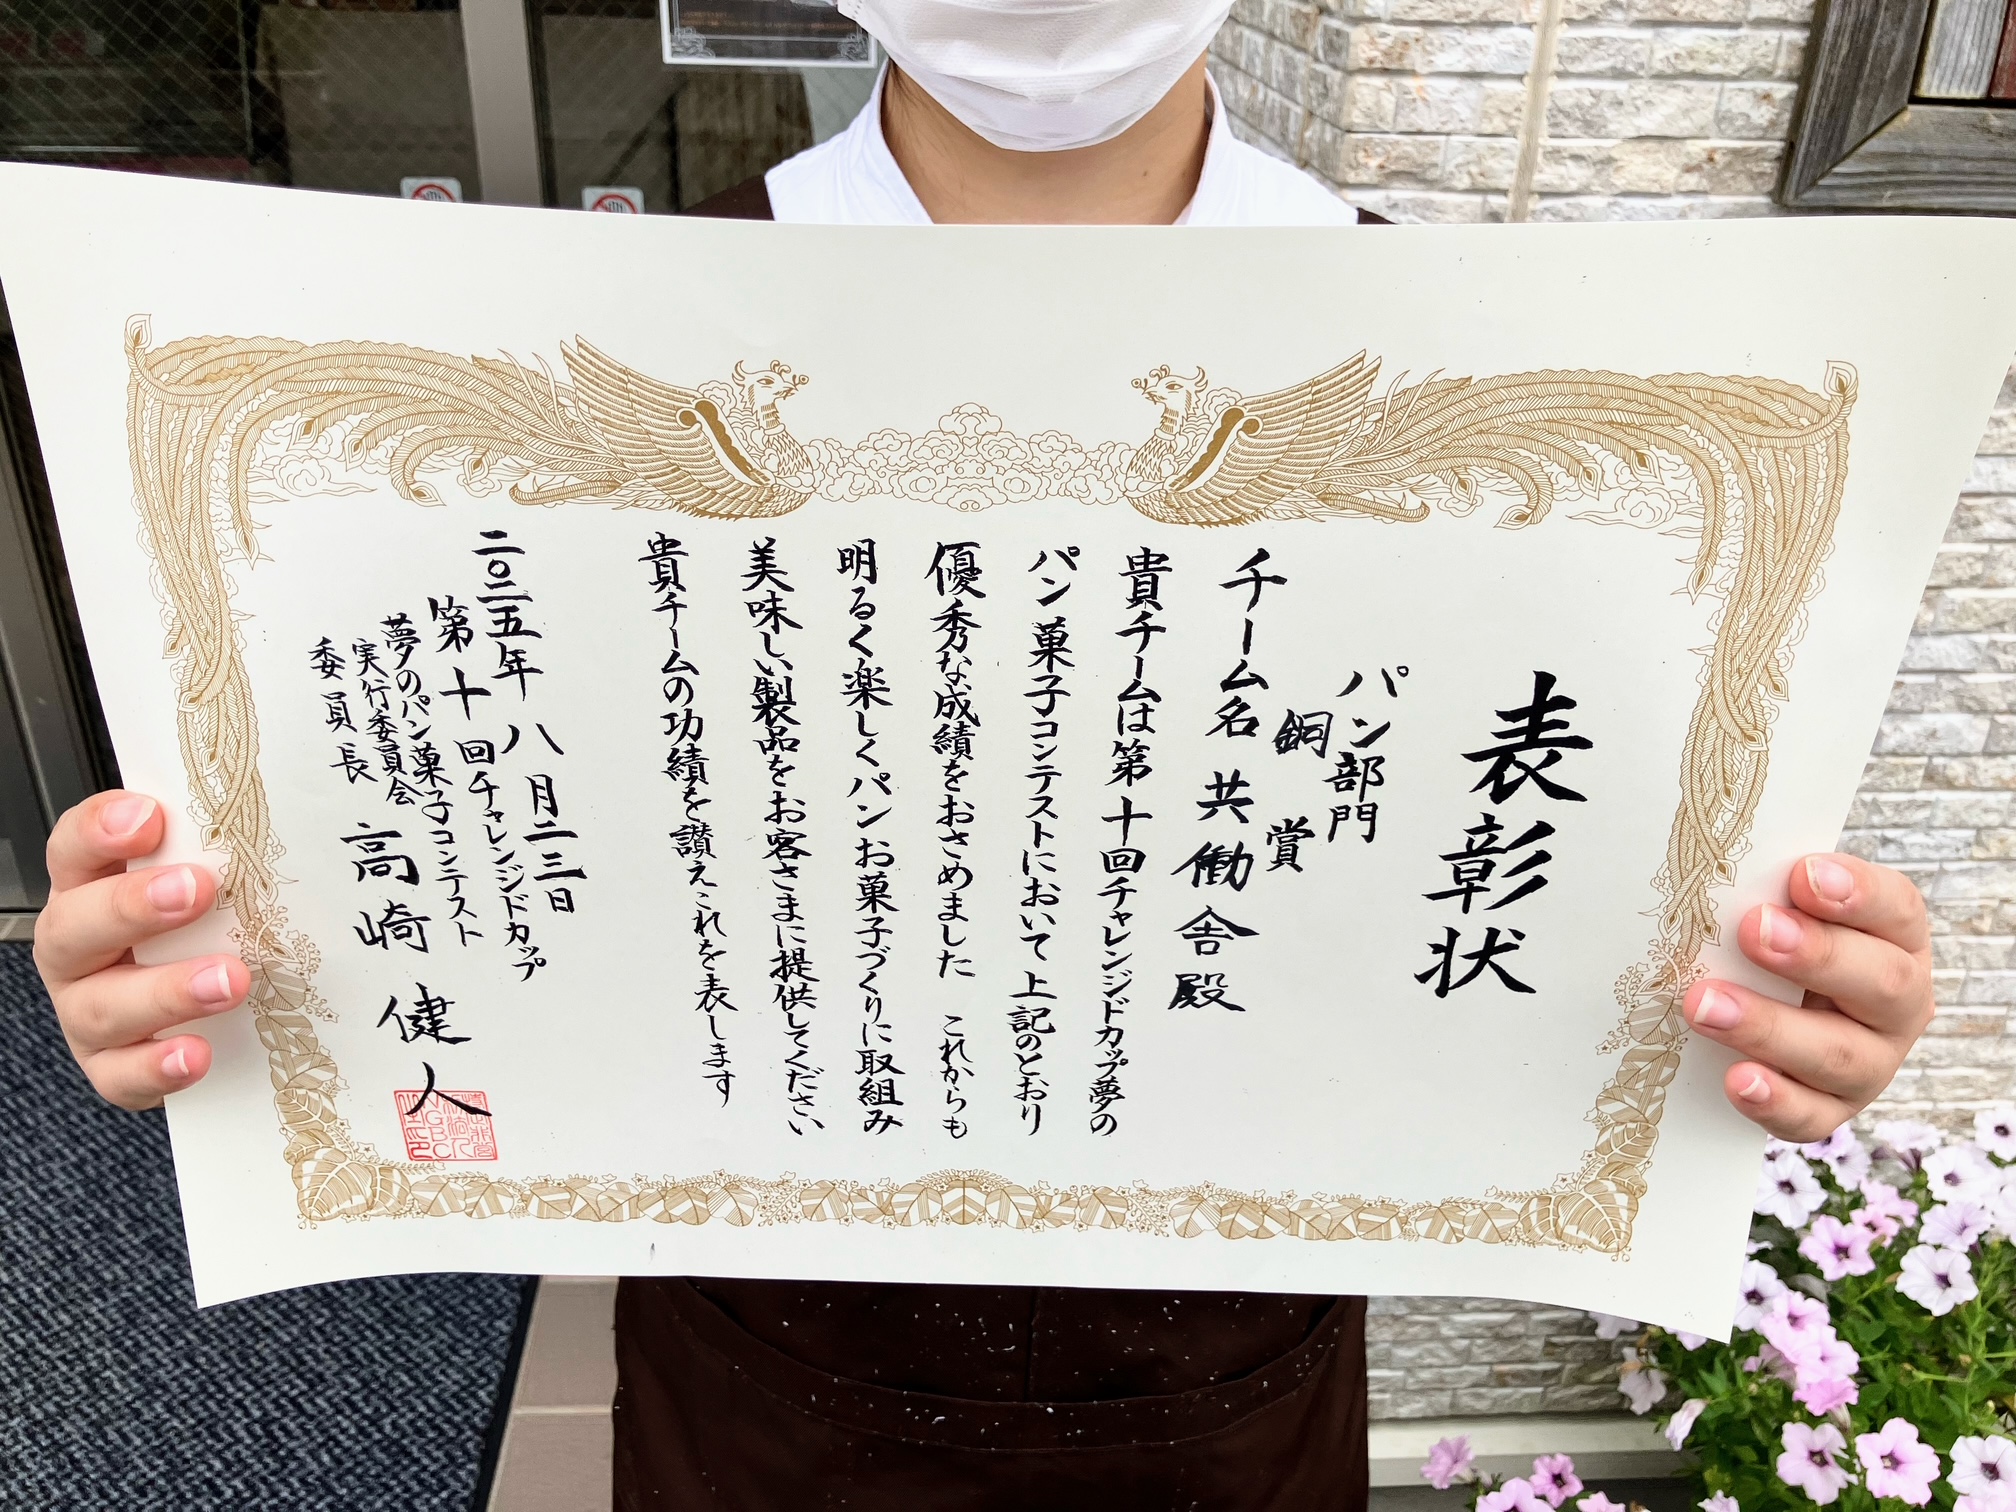 表彰状
パン部門
銅賞
チーム名 共働舎 殿
貴チームは第十回チャレンジドカップ夢の
パン菓子コンテストにおいて上記のとおり
優秀な成績をおさめました これからも
明るく楽しくパンお菓子づくりに取組み
美味しい製品をお客さまに提供してください
貴チームの功績を讃えこれを表します
二〇二五年八月二三日
第十回チャレンジドカップ
夢のパン菓子コンテスト
実行委員会
委員長 高崎健人